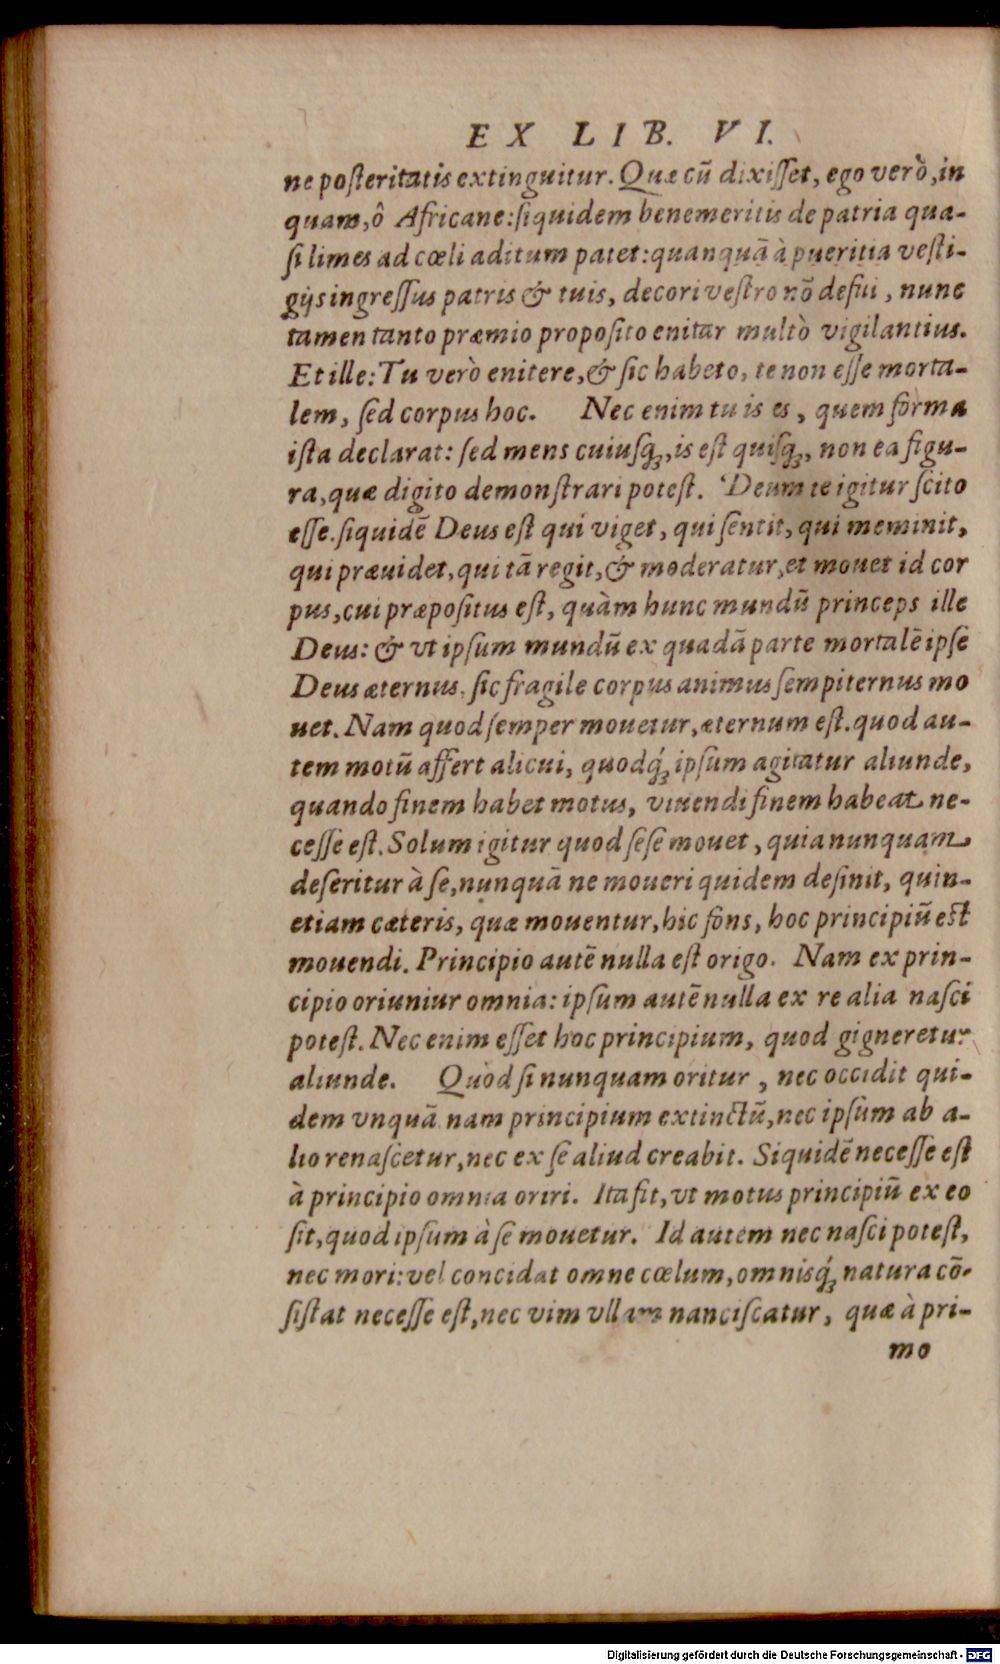 EX LIB. VI.
ne poſteritatis extinguitur. Quæ cũ dixiſſet, ego verò, in
quam, ô Africane: ſiquidem benemeritis de patria qua-
ſi limes ad cœli aditum patet: quanquã à pueritia veſti-
gijs ingreſſus patris & tuis, decori veſtro nõ defui, nunc
tamen tanto præmio propoſito enitar multò vigilantius.
Et ille: Tu verò enitere, & ſic habeto, te non eſſe morta-
lem, ſed corpus hoc. Nec enim tu is es, quem forma
iſta declarat: ſed mens cuiuſq́ꝫ, is eſt quiſq́ꝫ, non ea figu-
ra, quæ digito demonſtrari poteſt. Deum te igitur ſcito
eſſe. ſiquidẽ Deus eſt qui viget, qui ſentit, qui meminit,
qui præuidet, qui tã regit, & moderatur, et mouet id cor
pus, cui præpoſitus eſt, quàm hunc mundũ princeps ille
Deus: & vt ipſum mundũ ex quadã parte mortalẽ ipſe
Deus æternus, ſic fragile corpus animus ſempiternus mo
uet. Nam quod ſemper mouetur, æternum eſt. quod au-
tem motũ affert alicui, quodq́ꝫ ipſum agitatur aliunde,
quando finem habet motus, viuendi finem habeat ne-
ceſſe eſt. Solum igitur quod ſeſe mouet, quia nunquam
deſeritur à ſe, nunquã ne moueri quidem deſinit, quin-
etiam cæteris, quæ mouentur, hic fons, hoc principiũ eſt
mouendi. Principio autẽ nulla eſt origo. Nam ex prin-
cipio oriuntur omnia: ipſum autẽ nulla ex re alia naſci
poteſt. Nec enim eſſet hoc principium, quod gigneretur
aliunde. Quòd ſi nunquam oritur, nec occidit qui-
dem vnquã nam principium extinctũ, nec ipſum ab a-
lio renaſcetur, nec ex ſe aliud creabit. Siquidẽ neceſſe eſt
à principio omnia oriri. Ita fit, vt motus principiũ ex eo
ſit, quod ipſum à ſe mouetur. Id autem nec naſci poteſt,
nec mori: vel concidat omne cœlum, omnisq́ꝫ natura cõ-
ſiſtat neceſſe eſt, nec vim vllam nanciſcatur, quæ à pri-
mo
Digitalisierung gefördert durch die Deutsche Forschungsgemeinschaft - DFG